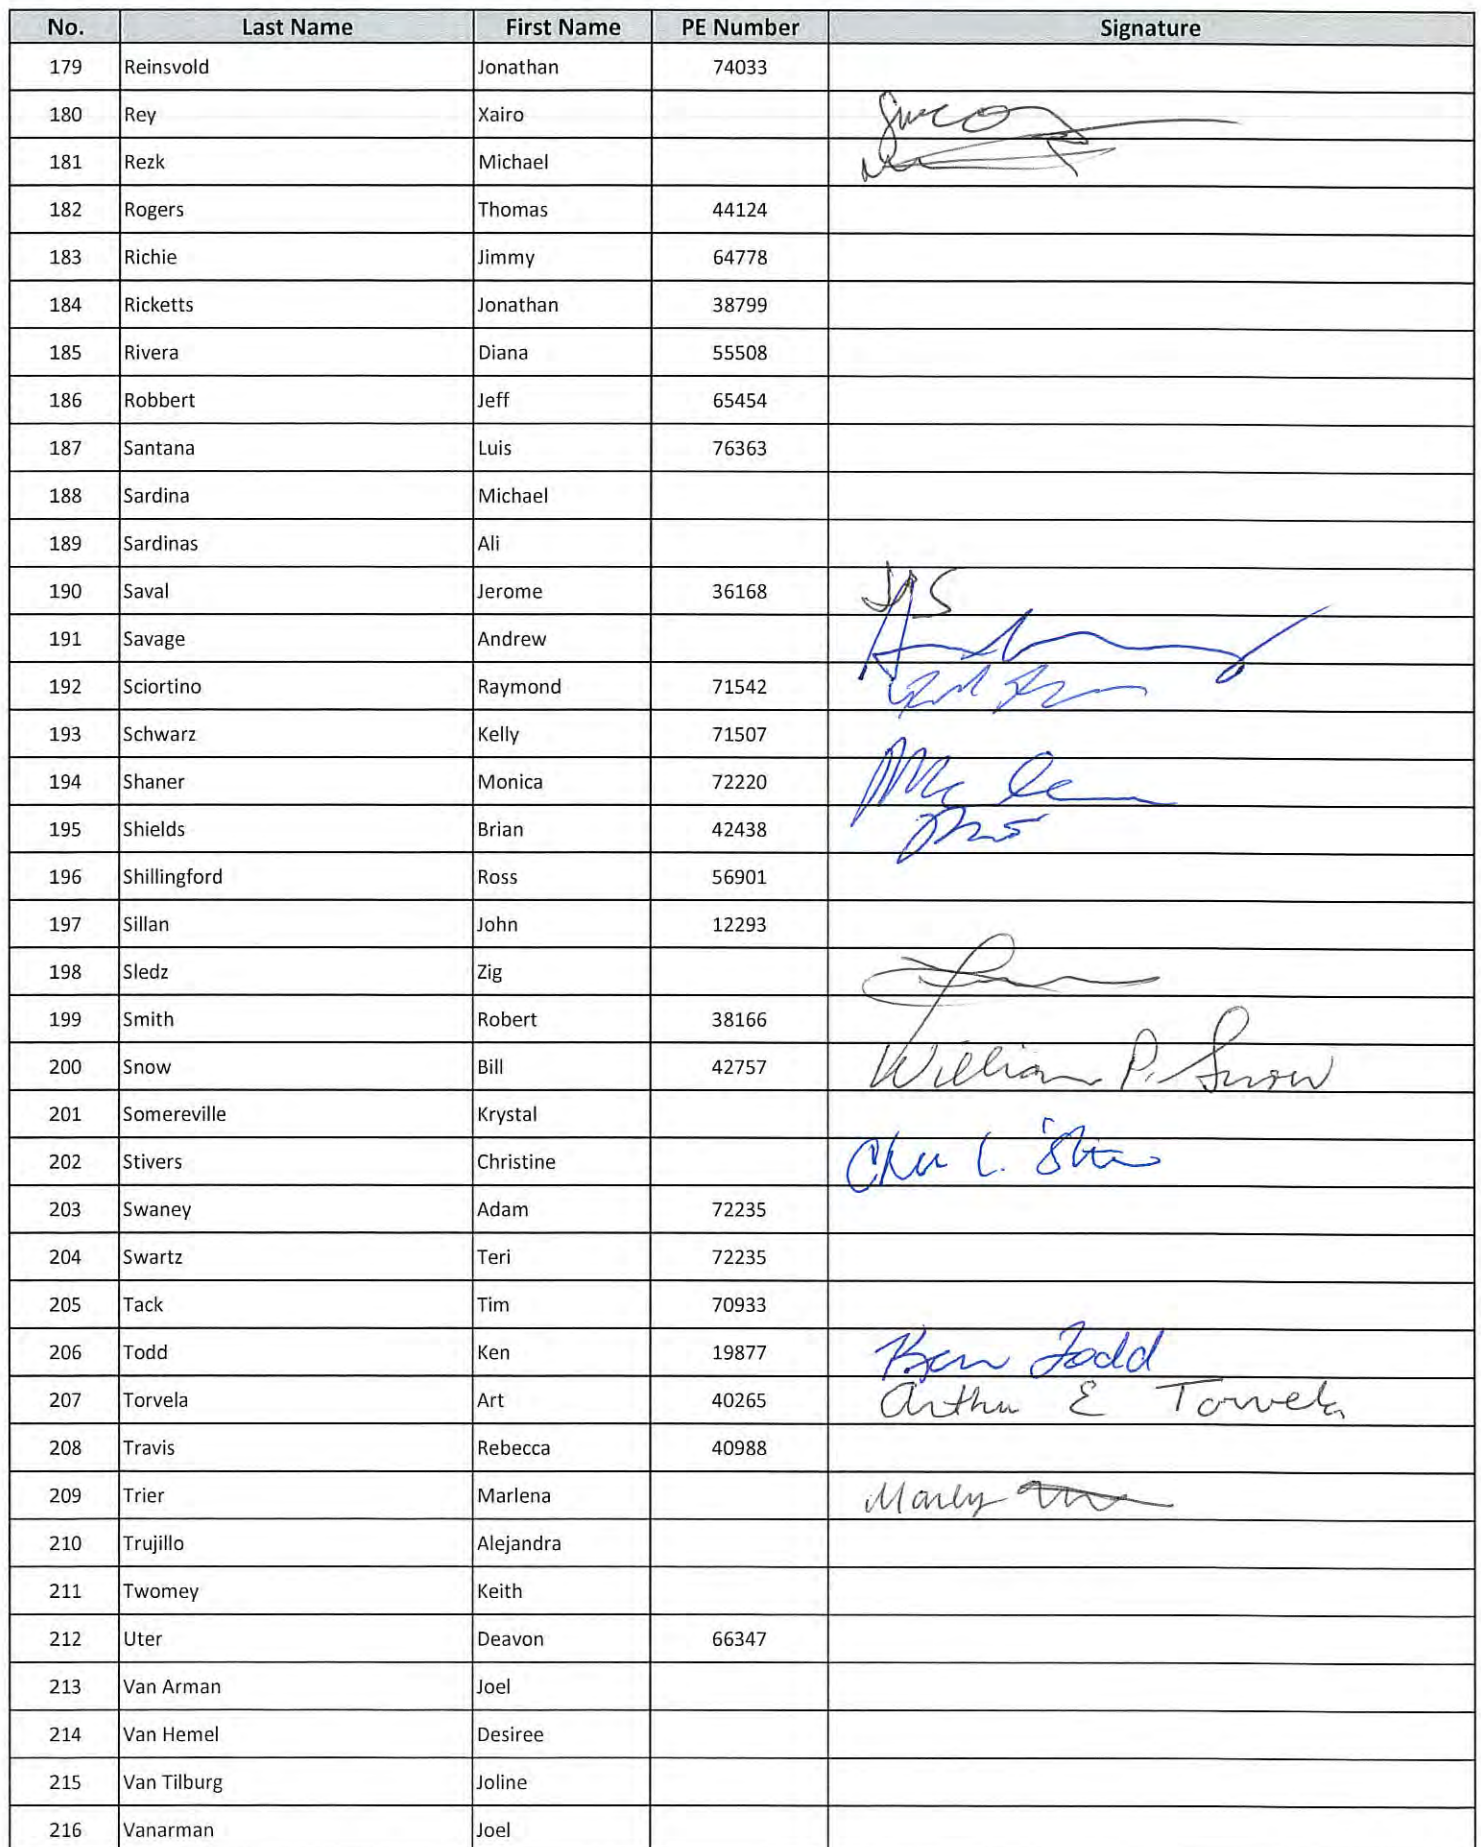 No. Last Name First Name PE Number Signature
179 Reinsvold Jonathan 74033
180 Rey Xairo
181 Rezk Michael
182 Rogers Thomas 44124
183 Richie Jimmy 64778
184 Ricketts Jonathan 38799
185 Rivera Diana 55508
186 Robbert Jeff 65454
187 Santana Luis 76363
188 Sardina Michael
189 Sardinas Ali
190 Saval Jerome 36168 JAS
191 Savage Andrew
192 Sciortino Raymond 71542
193 Schwarz Kelly 71507
194 Shaner Monica 72220
195 Shields Brian 42438
196 Shillingford Ross 56901
197 Sillan John 12293
198 Sledz Zig
199 Smith Robert 38166
200 Snow Bill 42757 William P. Snow
201 Somereville Krystal
202 Stivers Christine
203 Swaney Adam 72235
204 Swartz Teri 72235
205 Tack Tim 70933
206 Todd Ken 19877 Ken Todd
207 Torvela Art 40265 Arthur E Torvela
208 Travis Rebecca 40988
209 Trier Marlena
210 Trujillo Alejandra
211 Twomey Keith
212 Uter Deavon 66347
213 Van Arman Joel
214 Van Hemel Desiree
215 Van Tilburg Joline
216 Vanarman Joel